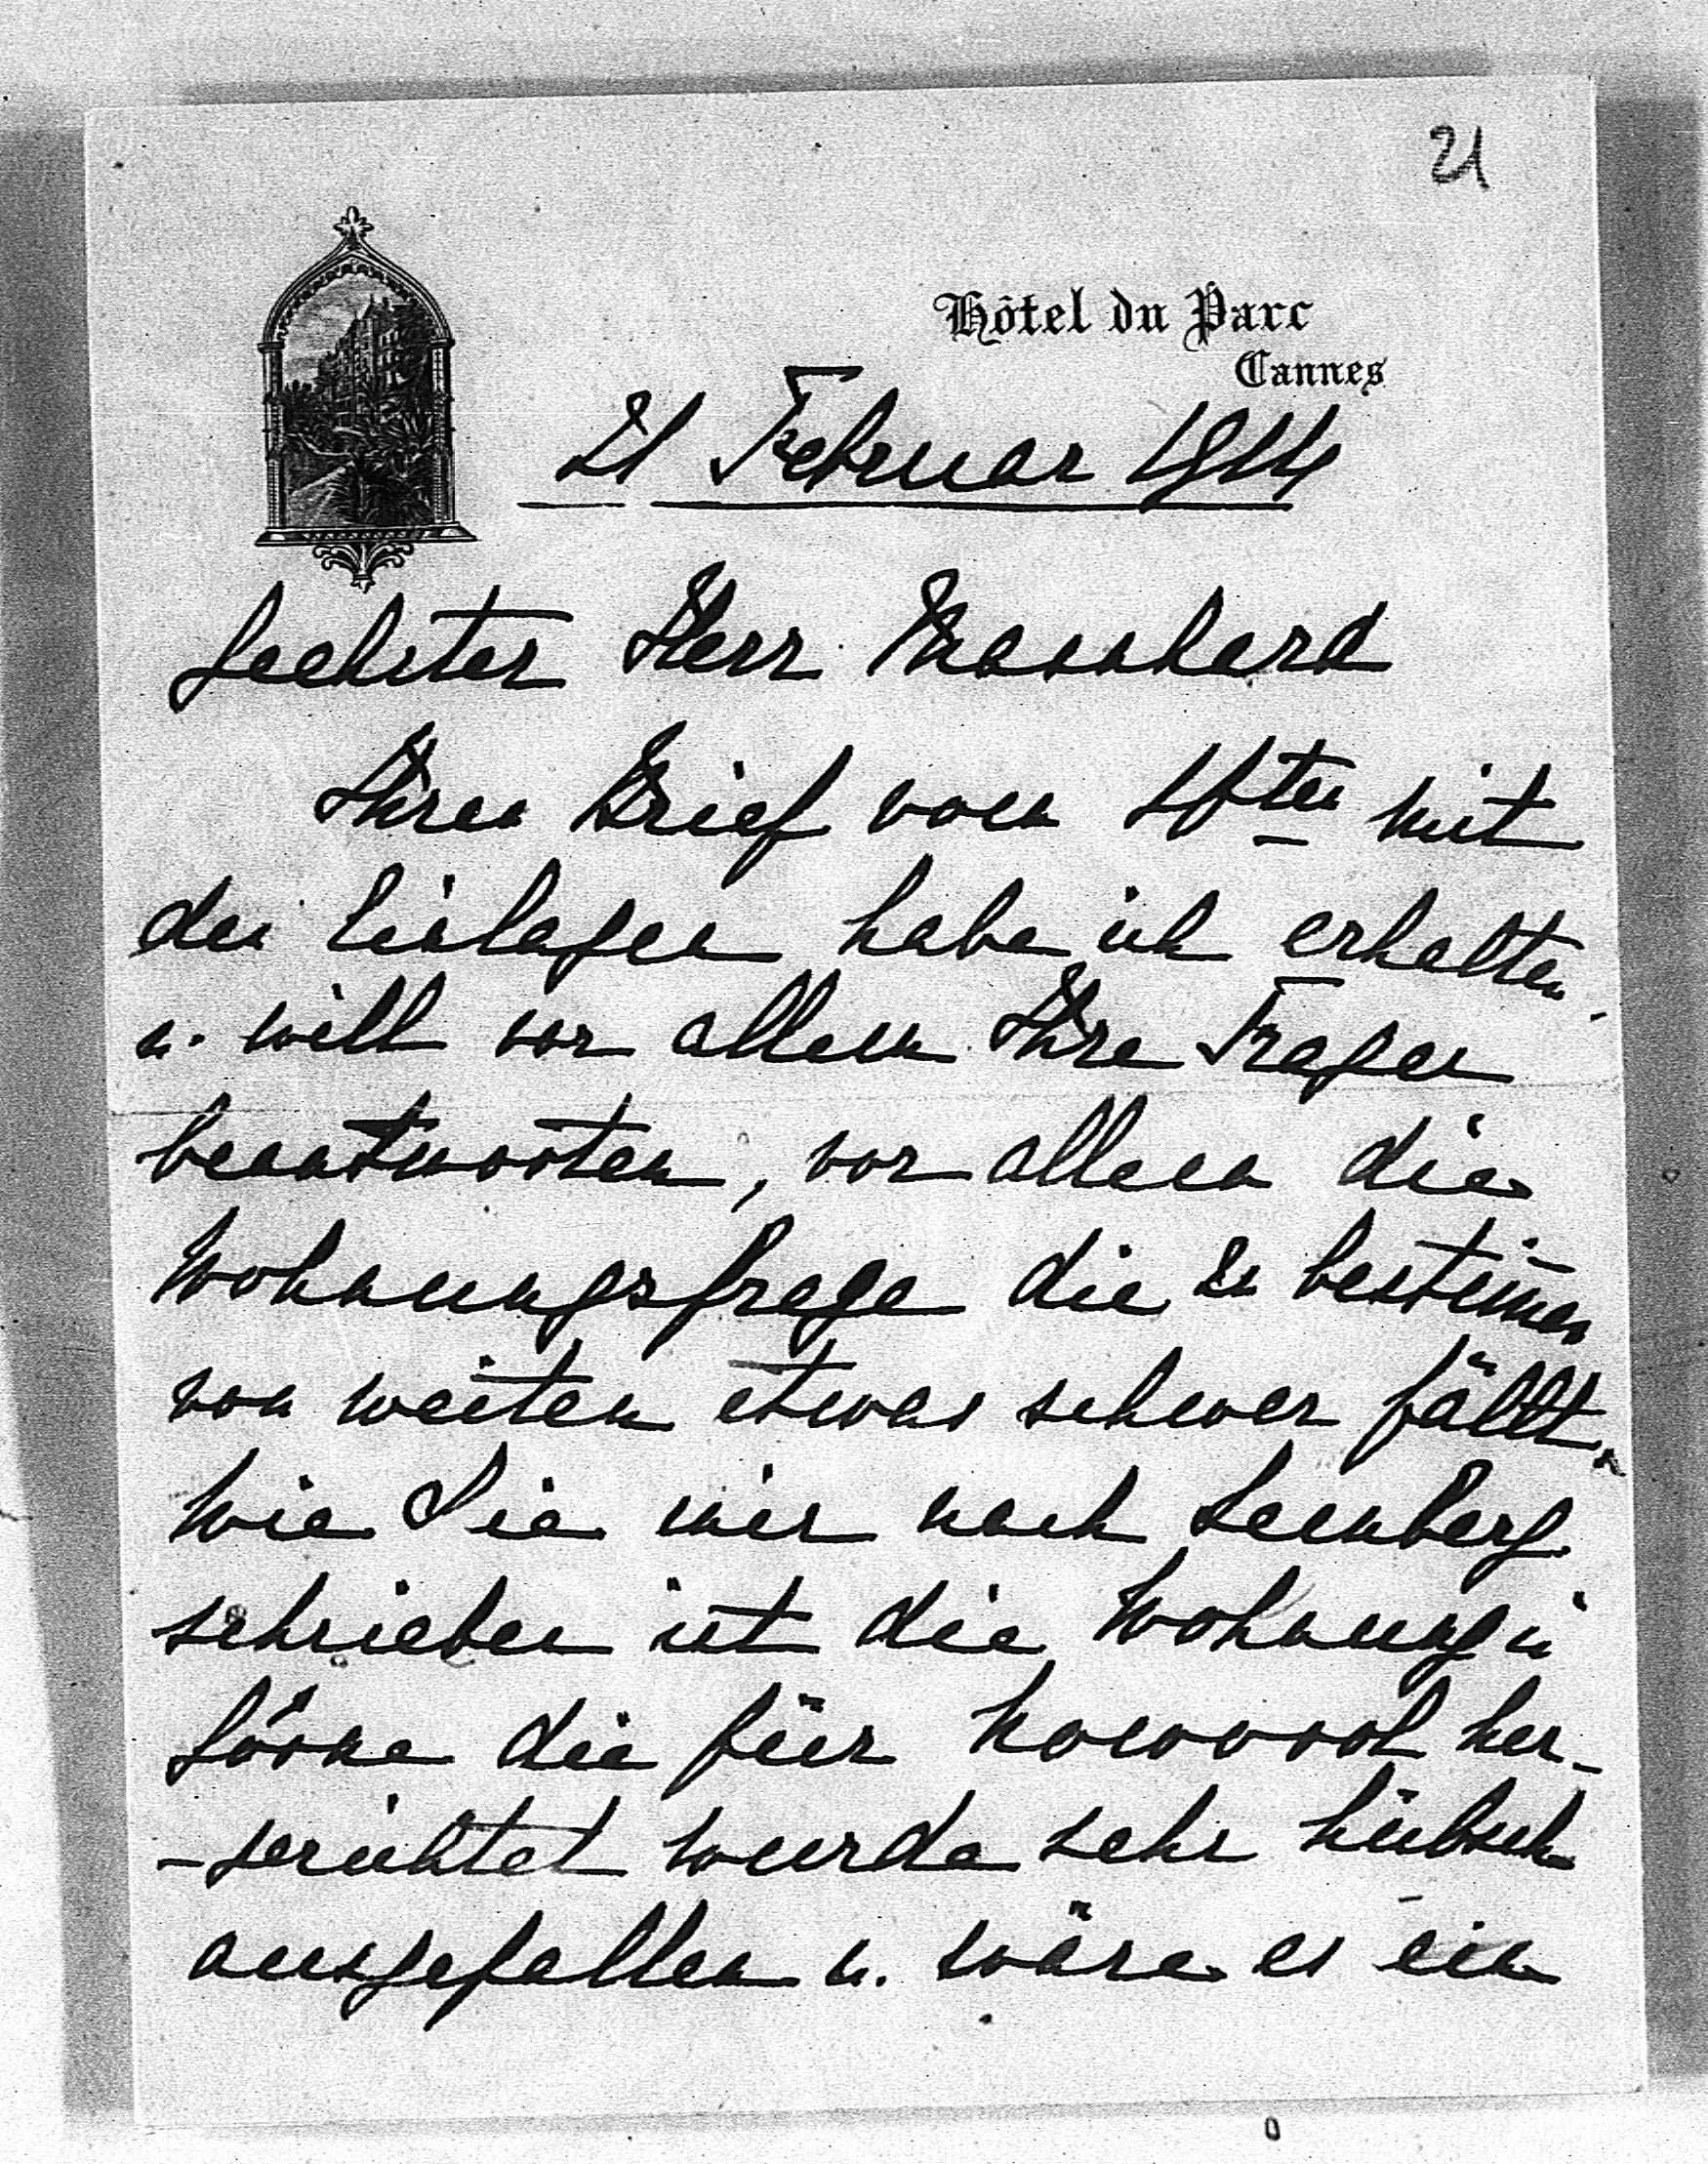 21
Hôtel du Parc
Cannes
21 Februar 1914
Geehrter Herr
Ihren Brief vom mit
den Einlagen habe ich erhalten
u. will vor allem Ihre Fragen
beantworten, vor allem die
Wohnungsfrage die zu bestim̄en
von weitem etwas schwer fällt.
Wie Sie mir nach Lemberg
schrieben ist die Wohnung in
die für her-
-gerichtet wurde sehr hübsch
ausgefallen u. wäre es ein